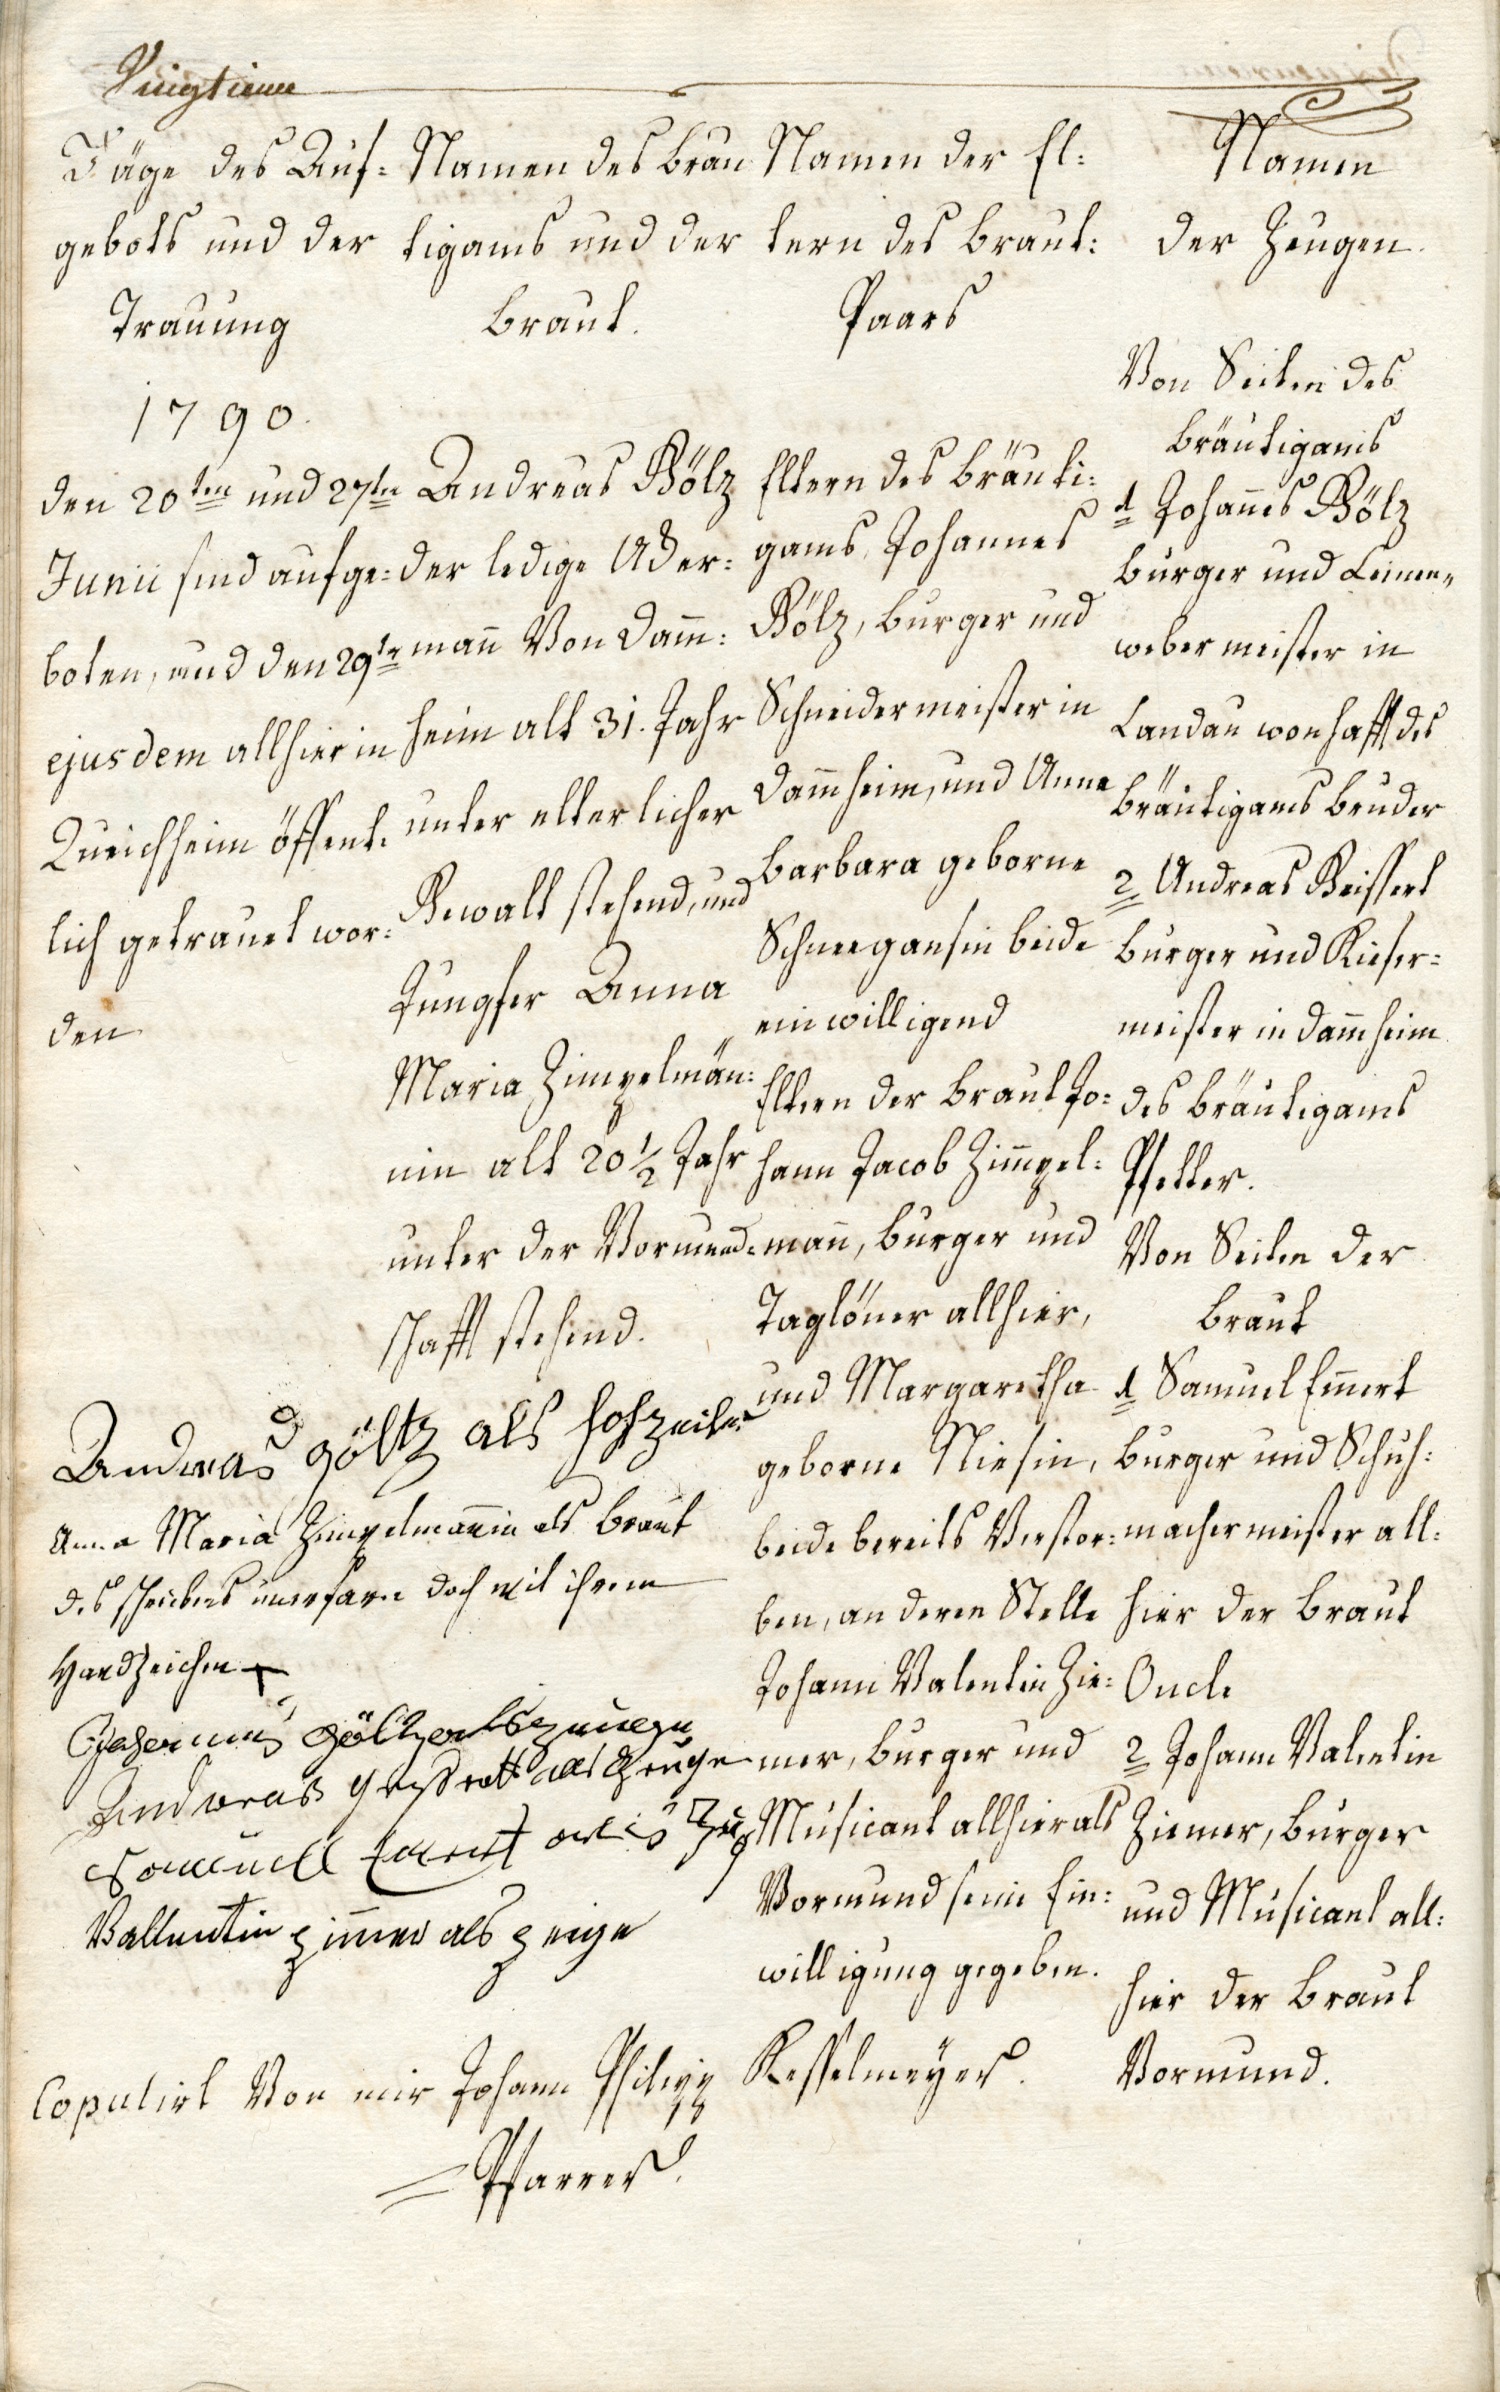 Vingtieme
Täge des Auf=
gebots und der
Trauung
1790.
den 20ten und 27ten
Junii sind aufge=
boten, und den 29ten
ejusdem allhier in
Queichheim öffent=
lich getrauet wor=
den
Namen des Bräu
tigams und der
Braut.
Andreas Gölz
der ledige Acker=
mañ Von Dam̃=
heim alt 31. Jahr
unter elterlicher
Gewalt stehend, und
Jungfer Anna
Maria Zimpelmän=
nin alt 20 1/2 Jahr
unter der Vormund=
schafft stehend.
Namen der El=
tern des Braut=
Paars
Eltern des Bräuti=
gams, Johannes
Gölz, Burger und
Schneidermeister in
Dam̃heim, und Anna
Barbara geborne
Schneegansin beide
einwilligend
Eltern der Braut Jo=
hann Jacob Zim̃pel=
mañ, Burger und
Taglöner allhier,
und Margaretha
geborne Niesin,
beide bereits Verstor=
ben, an deren Stelle
Johann Valentin Zie=
mer, Burger und
Musicant allhier als
Vormund seine Ein=
willigung gegeben.
Namen
der Zeugen.
Von Seiten des
Bräutigams
1 Johañes Gölz
Burger und Leinen=
weber meister in
Landau wonhafft des
Bräutigams Bruder
2 Andreas Geissert
Burger und Kiefer=
meister in Dam̃heim
des Bräutigams
Pfetter.
Von Seiten der
Braut
1 Samuel Em̃ert
Burger und Schuh=
machermeister all=
hier der Braut
Oncle
2 Johann Valentin
Ziemer, Burger
und Musicant all=
hier der Braut
Vormund.
Andreas göltz als hochzeiter
Anna Maria Zimpelmañin als Braut
des schreibens unerfaren doch mit ihrem
Handzeichen +
göltz als zeuge
Andreas als Zeuge
Samuell als
Vallentin zim̃er als zeige
Copulirt Von mir Johann Philipp Kesselmeyer.
Pfarrer.